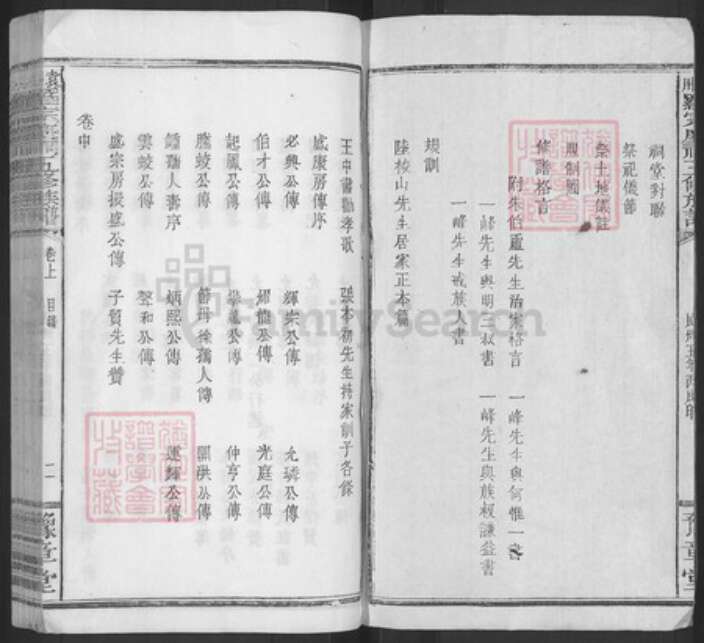 祠堂對聯
祭祀儀節
祭土地儀註
服制圖
修譜格言
附朱伯廬先生治家格言 一峰先生與何惟一書
一峰先生與明三叔書 一峰先生與族叔謙益書
一峰先生戒族人書
規訓
陸梭山先生居家正本篇
王中書勸孝歌 張本初先生持家訓子各錄
威康房傳序
必興公傳 輝宗公傳 尤璘公傳
伯才公傳 耀龍公傳 光庭公傳
起鳳公傳 仲亨公傳
騰蛟公傳 開洪公傳
孺人壽序 炳熙公傳 運輝公傳
雲蛟公傳 聲和公傳
盛宗房振盛公傳 子賢先生贊
卷中
卷上
目錄
二
豫章堂
豫章堂
FamilySearch